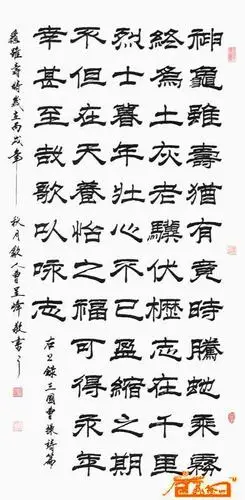 神龜雖壽猶有竟時騰虵乘霧
終為土灰老驥伏櫪志在千里
烈士暮年壯心不已盈縮之期
不但在天養怡之福可得永年
幸甚至哉歌以咏志
右上錄三國曹操詩篇
龜雖壽時歲丙戌年秋月人曹呈敬書